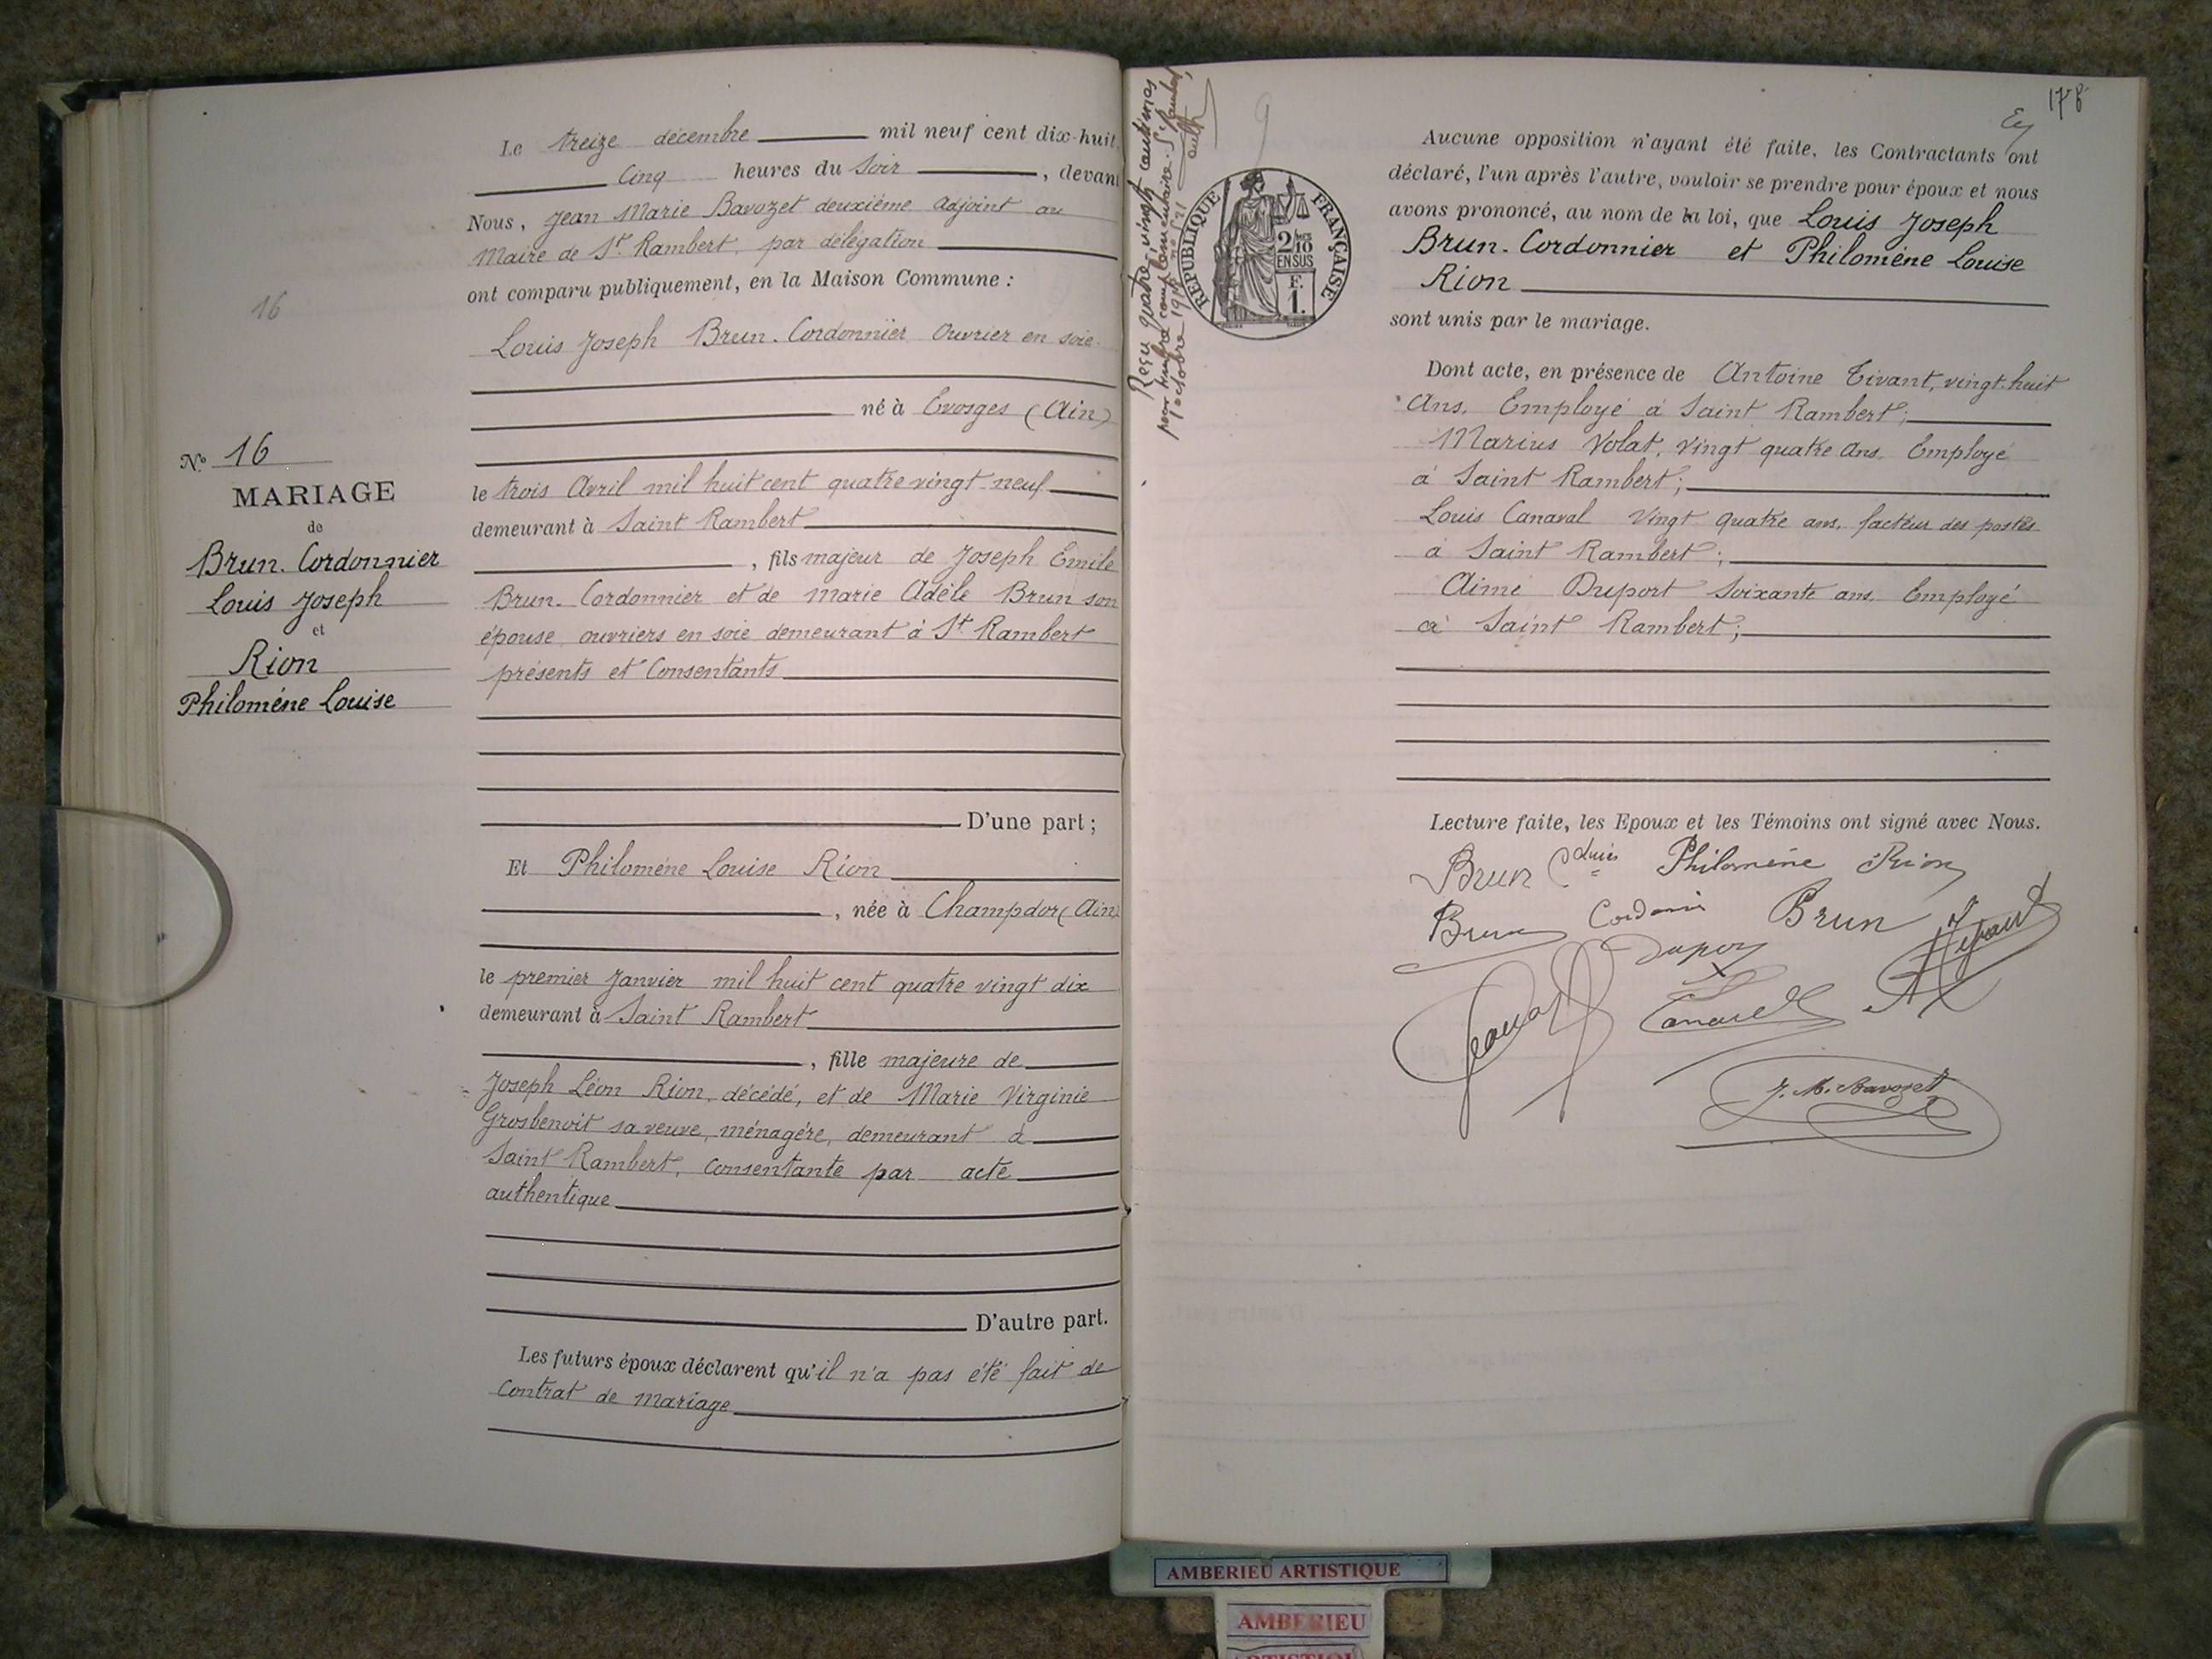 16
N.o 16
MARIAGE
de
Brun. Cordonnier
Louis Joseph
et
Rion
Philomène Louise
Le treize décembre mil neuf cent dix-huit,
Cinq heures du Soir, devant
Nous, Jean Marie Bavozet deuxième adjoint au
Maire de St Rambert, par délégation
ont comparu publiquement, en la Maison Commune :
Louis Joseph Brun. Cordonnier Ouvrier en soie.
né à Evosges (Ain)
le trois Avril mil huit cent quatre vingt neuf
demeurant à Saint Rambert
, fils majeur de Joseph Emile
Brun. Cordonnier et de Marie Adèle Brun son
épouse, ouvriers en soie demeurant à St Rambert
présents et Consentants
D'une part ;
Et Philomène Louise Rion
, née à Champdor (Ain)
le premier Janvier mil huit cent quatre vingt dix
demeurant à Saint Rambert
, fille majeure de
Joseph Léon Rion, décédé, et de Marie Virginie
Grosbenoit sa veuve, ménagère, demeurant à
Saint Rambert, consentante par acte
authentique
D'autre part.
Les futurs époux déclarent qu'il n'a pas été fait de
Contrat de mariage
Reçu quatre-vingts centimes
pour timbre complémentaire. St Rambert,
octobre
9
RÉPUBLIQUE FRANÇAISE
2/10
EN SUS
F.
1.
178
Aucune opposition n'ayant été faite, les Contractants ont
déclaré, l'un après l'autre, vouloir se prendre pour époux et nous
avons prononcé, au nom de la loi, que Louis Joseph
Brun. Cordonnier et Philomène Louise
Rion
sont unis par le mariage.
Dont acte, en présence de Antoine Tivant, vingt-huit
Ans, Employé à Saint Rambert;
Marius Volat, vingt quatre Ans, Employé
à Saint Rambert;
Louis Canaval vingt quatre ans, facteur des postes
à Saint Rambert;
Aimé Duport Soixante ans, Employé
à Saint Rambert;
Lecture faite, les Epoux et les Témoins ont signé avec Nous.
Brun Louis Philomène Rion
Brun Cordonnier Brun
Duport
Canaval
J. M. Bavozet
AMBERIEU ARTISTIQUE
AMBERIEU